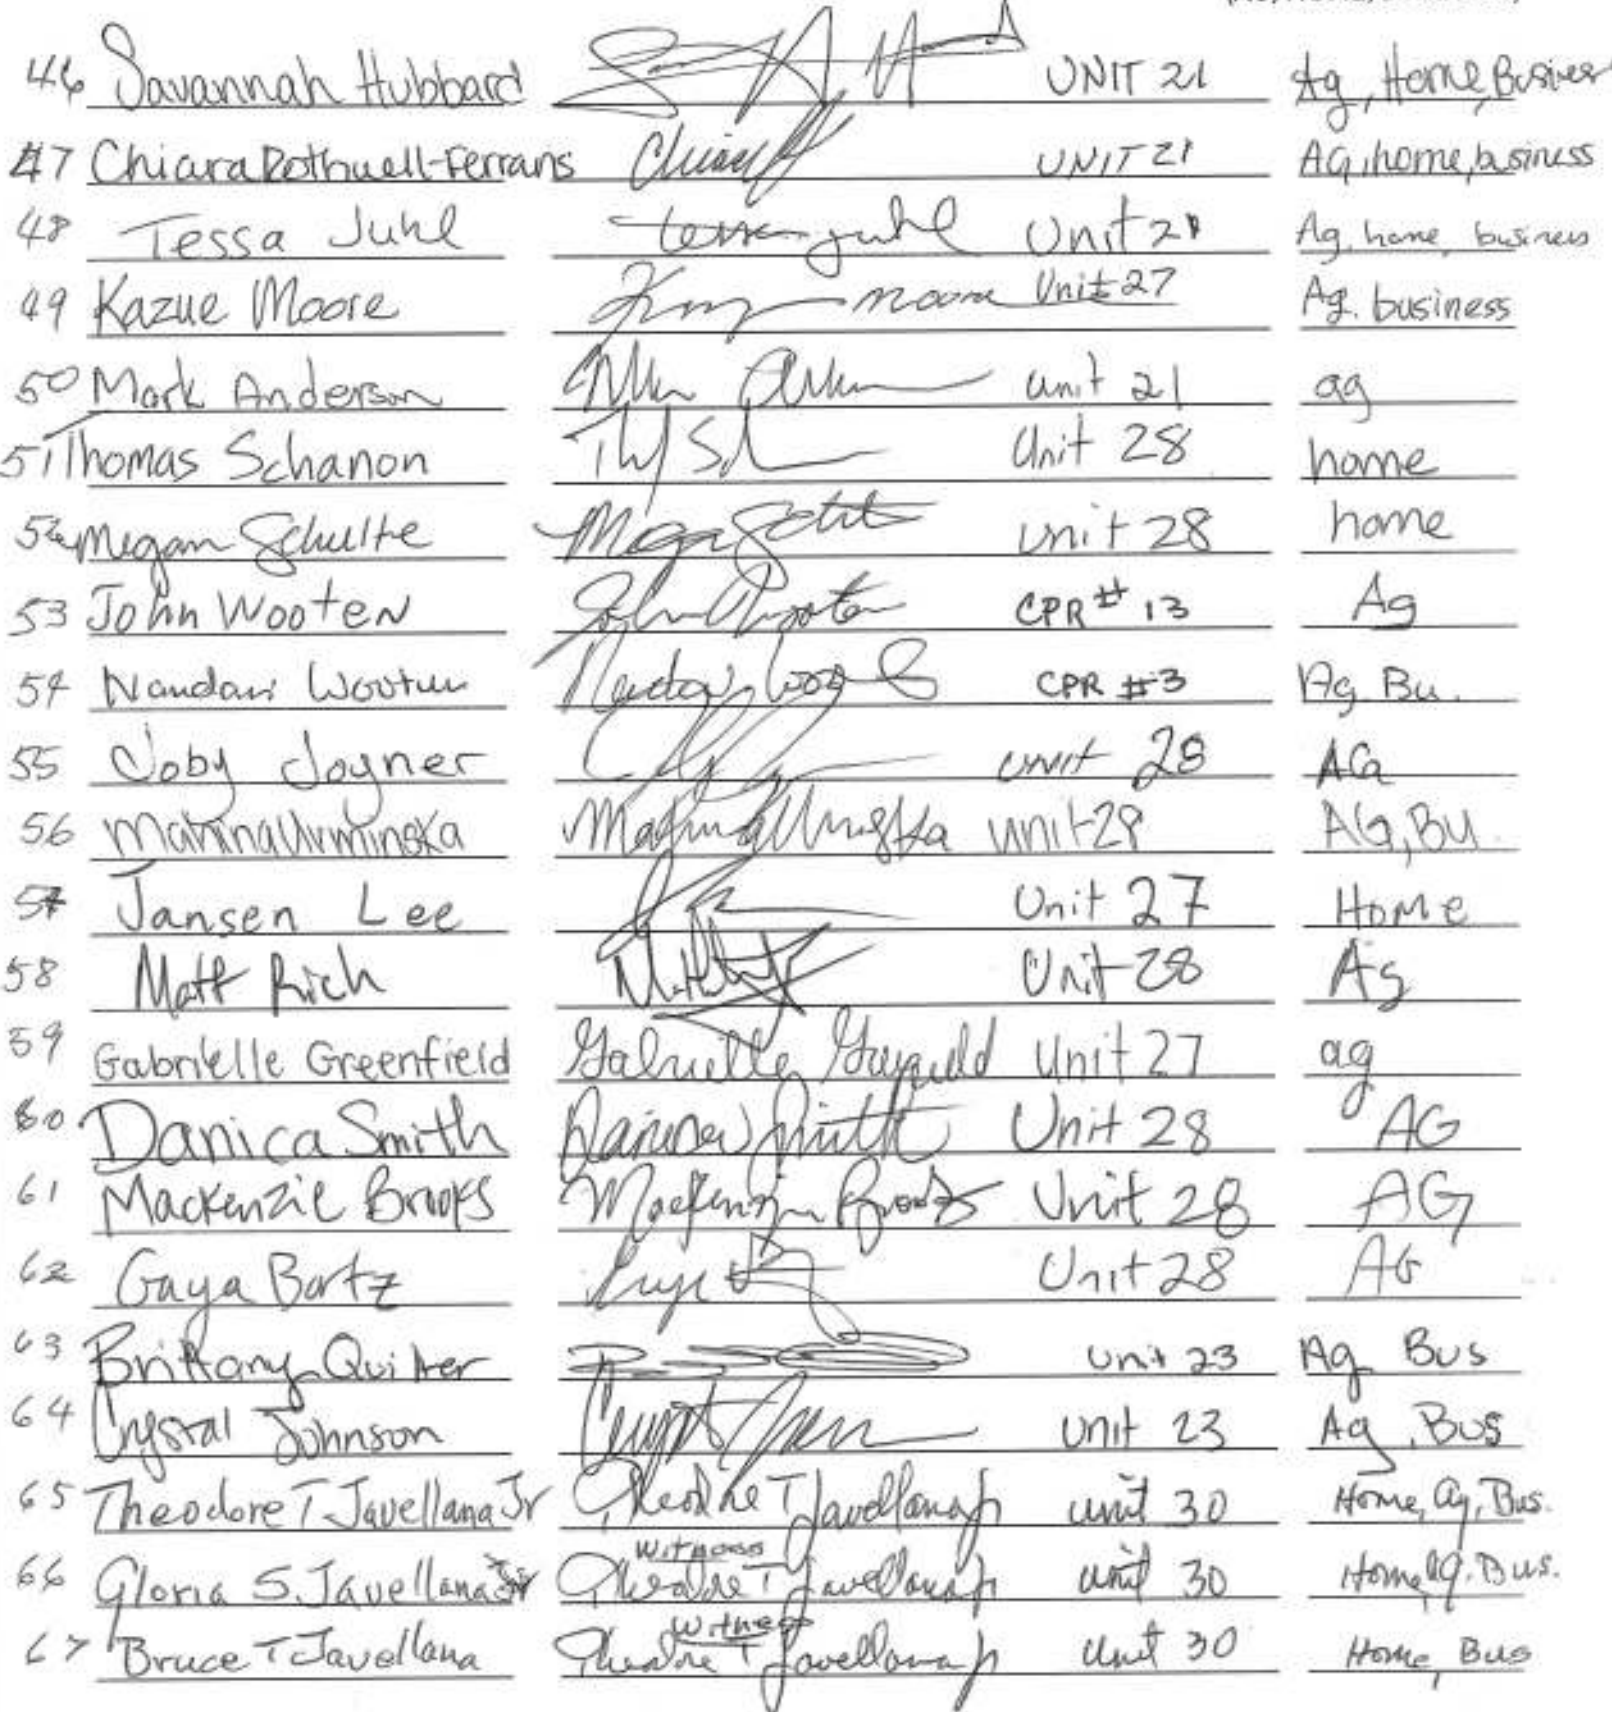 46 Savannah Hubbard UNIT 21 Ag, Home, Business
47 Chiara Rothwell-Ferraris UNIT 21 AG, home, business
48 Tessa Juhl tessa juhl Unit 21 Ag, home, business
49 Kazue Moore Moore Unit 27 Ag. business
50 Mark Anderson unit 21 ag
51 Thomas Schanon Unit 28 home
52 Megan Schulte unit 28 home
53 John Wooten John Wooten CPR # 13 Ag
54 CPR #3 Ag. Bu.
55 Joby Joyner unit 28 AG
56 Unit 28 AG, BU.
57 Jansen Lee Unit 27 Home
58 Matt Rich Unit 28 Ag
59 Gabrielle Greenfield Gabrielle Greenfield Unit 27 ag
60 Danica Smith Danica Smith Unit 28 AG
61 Mackenzie Brooks Mackenzie Brooks Unit 28 AG
62 Gaya Bartz Unit 28 AG
63 Brittany Unit 23 Ag Bus
64 Crystal Johnson unit 23 Ag, Bus
65 Theodore T Javellana Jr Theodore T Javellana Jr unit 30 Home, Ag, Bus.
witness
66 Gloria S. Javellana Theodore T Javellana Jr unit 30 Home, Ag. Bus.
witness
67 Bruce T Javellana Theodore T Javellana Jr Unit 30 Home, Bus